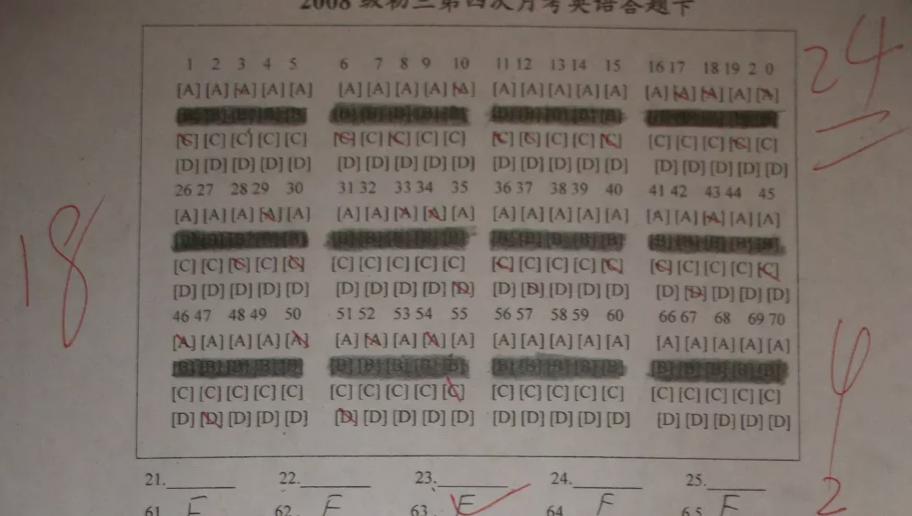 2008 级初三第四次月考英语答题卡
1 2 3 4 5 6 7 8 9 10 11 12 13 14 15 16 17 18 19 2 0
[A] [A] [A] [A] [A] [A] [A] [A] [A] [A] [A] [A] [A] [A] [A] [A] [A] [A] [A] [A]
[B] [B] [B] [B] [B] [B] [B] [B] [B] [B] [B] [B] [B] [B] [B] [B] [B] [B] [B] [B]
[C] [C] [C] [C] [C] [C] [C] [C] [C] [C] [C] [C] [C] [C] [C] [C] [C] [C] [C] [C]
[D] [D] [D] [D] [D] [D] [D] [D] [D] [D] [D] [D] [D] [D] [D] [D] [D] [D] [D] [D]
24
26 27 28 29 30 31 32 33 34 35 36 37 38 39 40 41 42 43 44 45
[A] [A] [A] [A] [A] [A] [A] [A] [A] [A] [A] [A] [A] [A] [A] [A] [A] [A] [A] [A]
[B] [B] [B] [B] [B] [B] [B] [B] [B] [B] [B] [B] [B] [B] [B] [B] [B] [B] [B] [B]
[C] [C] [C] [C] [C] [C] [C] [C] [C] [C] [C] [C] [C] [C] [C] [C] [C] [C] [C] [C]
[D] [D] [D] [D] [D] [D] [D] [D] [D] [D] [D] [D] [D] [D] [D] [D] [D] [D] [D] [D]
18
46 47 48 49 50 51 52 53 54 55 56 57 58 59 60 66 67 68 69 70
[A] [A] [A] [A] [A] [A] [A] [A] [A] [A] [A] [A] [A] [A] [A] [A] [A] [A] [A] [A]
[B] [B] [B] [B] [B] [B] [B] [B] [B] [B] [B] [B] [B] [B] [B] [B] [B] [B] [B] [B]
[C] [C] [C] [C] [C] [C] [C] [C] [C] [C] [C] [C] [C] [C] [C] [C] [C] [C] [C] [C]
[D] [D] [D] [D] [D] [D] [D] [D] [D] [D] [D] [D] [D] [D] [D] [D] [D] [D] [D] [D]
21. 22. 23. 24. 25.
61 F 62. F 63. F 64 F 65 F
2